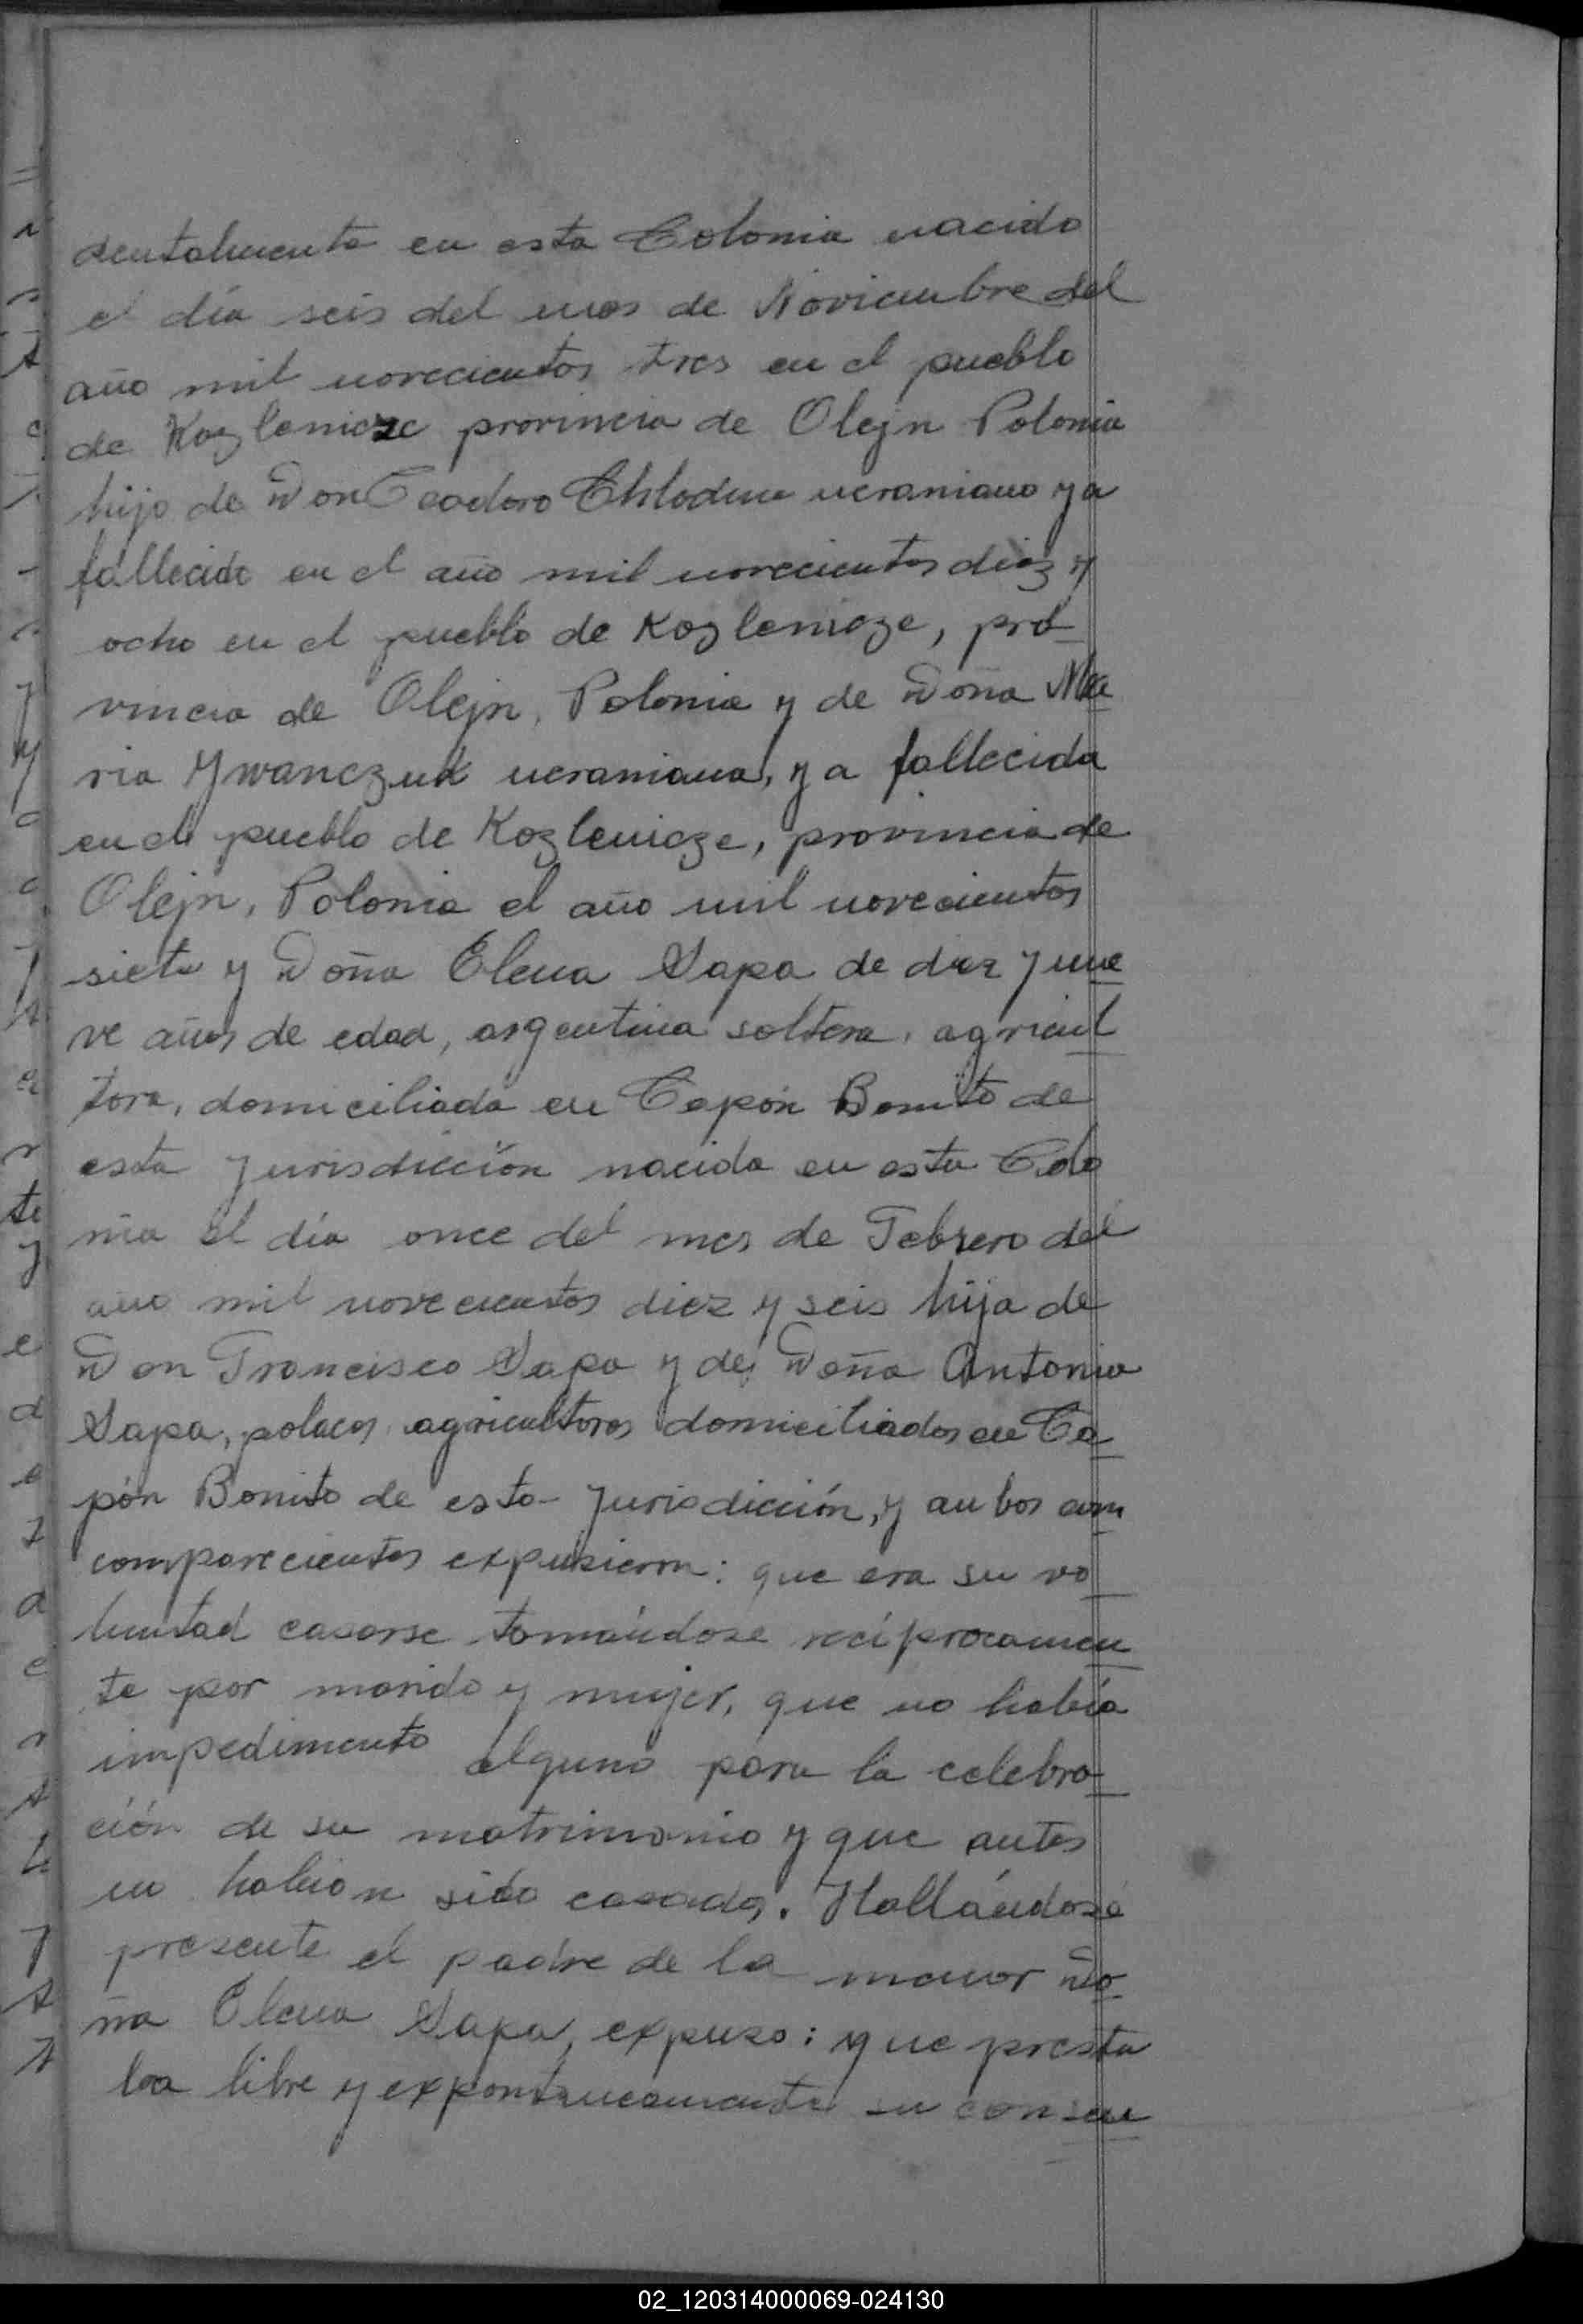 dentalmente en esta Colonia nacido
el día seis del mes de Noviembre del
año mil novecientos tres en el pueblo
de Kozlenicze provincia de Olejn Polonia
hijo de Don Teodoro Chlodun ucraniano ya
fallecido en el año mil novecientos diez y
ocho en el pueblo de Kozlenicze, pro
vincia de Olejn, Polonia y de Doña Ma
ria Ywanczuk ucraniana, ya fallecida
en el pueblo de Kozlenicze, provincia de
Olejn, Polonia el año mil novecientos
siete y Doña Elena Sapa de diez y nue
ve años de edad, argentina soltera, agricul
tora, domiciliada en Capón Bonito de
esta jurisdicción nacida en esta Colo
nia el día once del mes de Febrero del
año mil novecientos diez y seis hija de
Don Francisco Sapa y de Doña Antonia
Sapa, polacos agricultores domiciliados en Ca
pón Bonito de esta jurisdicción, y ambos com
comparecientes expusieron: que era su vo
luntad casarse tomándose recíprocamen
te por marido y mujer, que no había
impedimento alguno para la celebra
ción de su matrimonio y que antes
no habían sido casados. Hallándose
presente el padre de la menor Do
ña Elena Sapa, expuso: que presta
ba libre y expontaneamente su consen
02_120314000069-024130